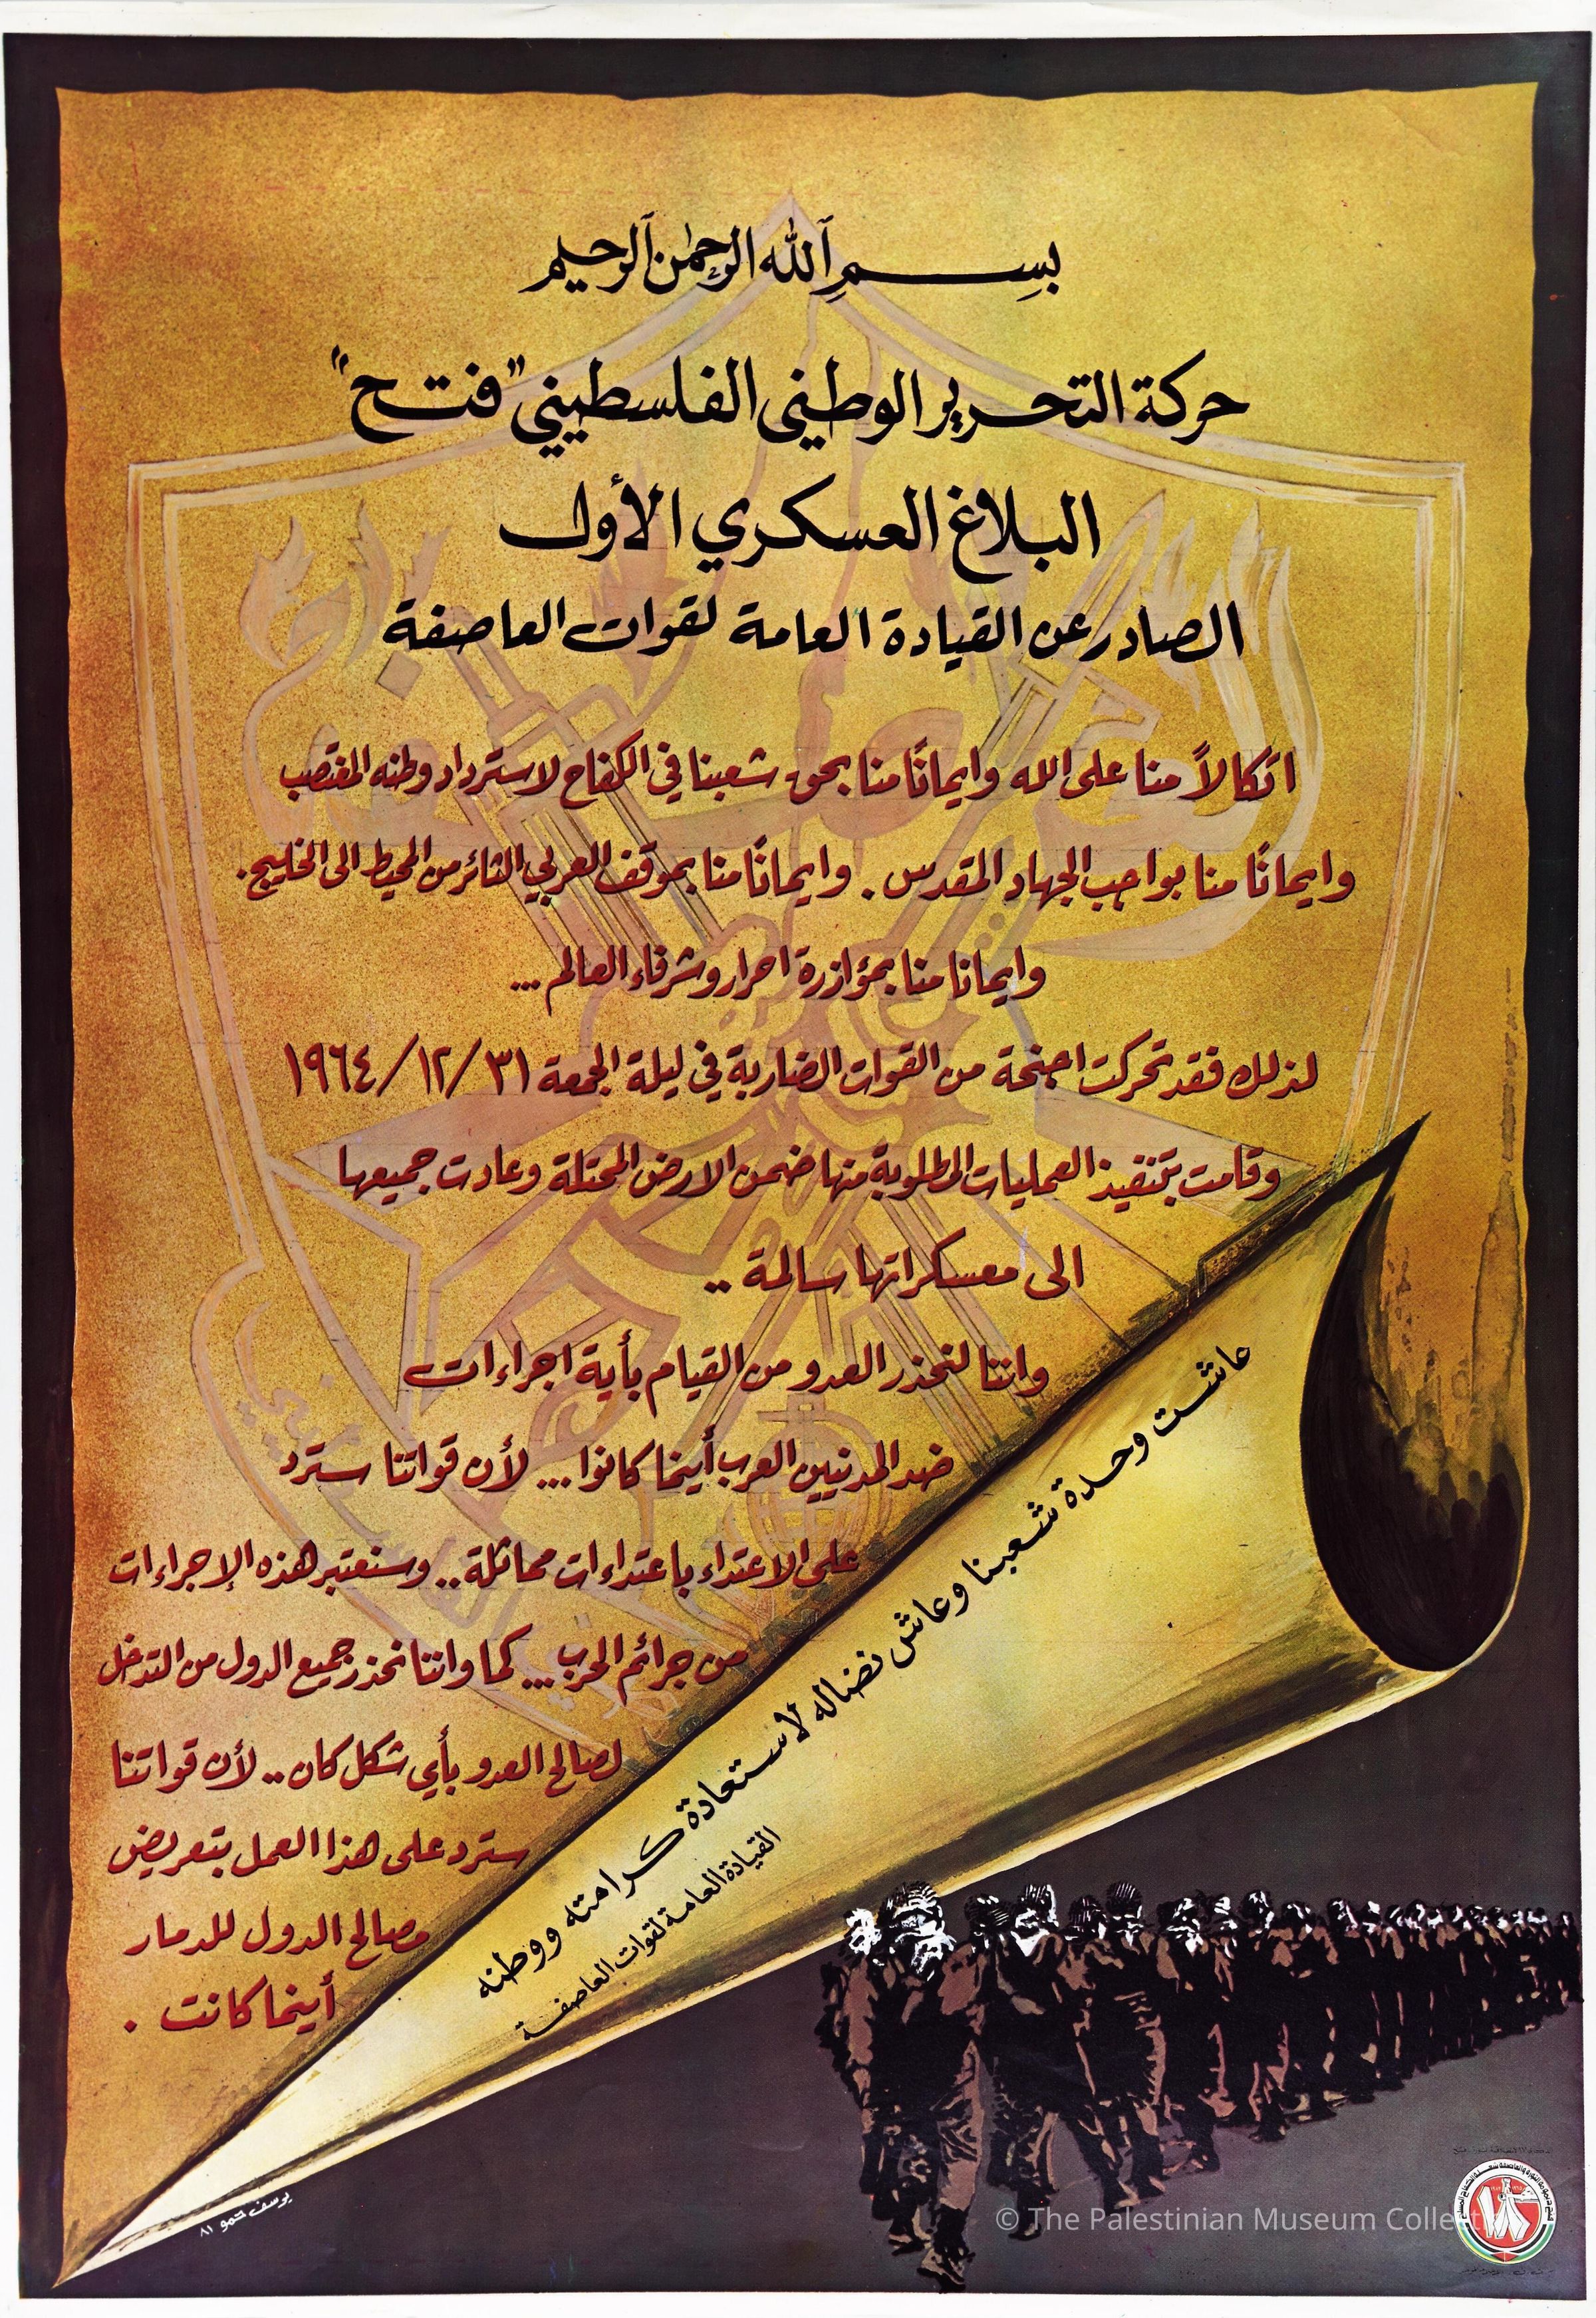 بسم الله الرحمن الرحيم
حركة التحرير الوطني الفلسطيني "فتح"
البلاغ العسكري الأول
الصادر عن القيادة العامة لقوات العاصفة
اتكالاً منا على الله وايمانًا منا بحق شعبنا في الكفاح لاسترداد وطنه المغتصب
وايمانًا منا بواجب الجهاد المقدس . وايمانًا منا بموقف العربي الثائر من المحيط الى الخليج .
وايمانا منا بمؤازرة احرار وشرفاء العالم ...
لذلك فقد تحركت اجنحة من القوات الضاربة في ليلة الجمعة ٣١/١٢/١٩٦٤
وقامت بتنفيذ العمليات المطلوبة منها ضمن الارض المحتلة وعادت جميعها
الى معسكراتها سالمة ..
واننا لنحذر العدو من القيام بأية اجراءات
ضد المدنيين العرب أينما كانوا ... لأن قواتنا سترد
على الاعتداء باعتداءات مماثلة .. وسنعتبر هذه الإجراءات
من جرائم الحرب ... كما واننا نحذر جميع الدول من التدخل
لصالح العدو بأي شكل كان .. لأن قواتنا
سترد على هذا العمل بتعريض
مصالح الدول للدمار
أينما كانت .
عاشت وحدة شعبنا وعاش نضاله لاستعادة كرامته ووطنه
القيادة العامة لقوات العاصفة
يوسف حمو ٨١
© The Palestinian Museum Collecti